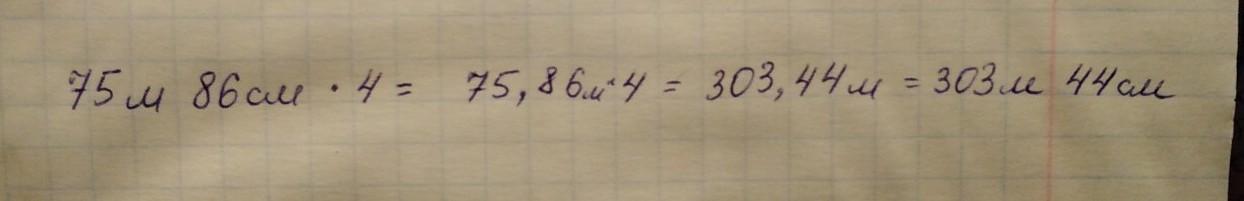 75м 86см · 4 = 75,86м·4 = 303,44м = 303м 44см